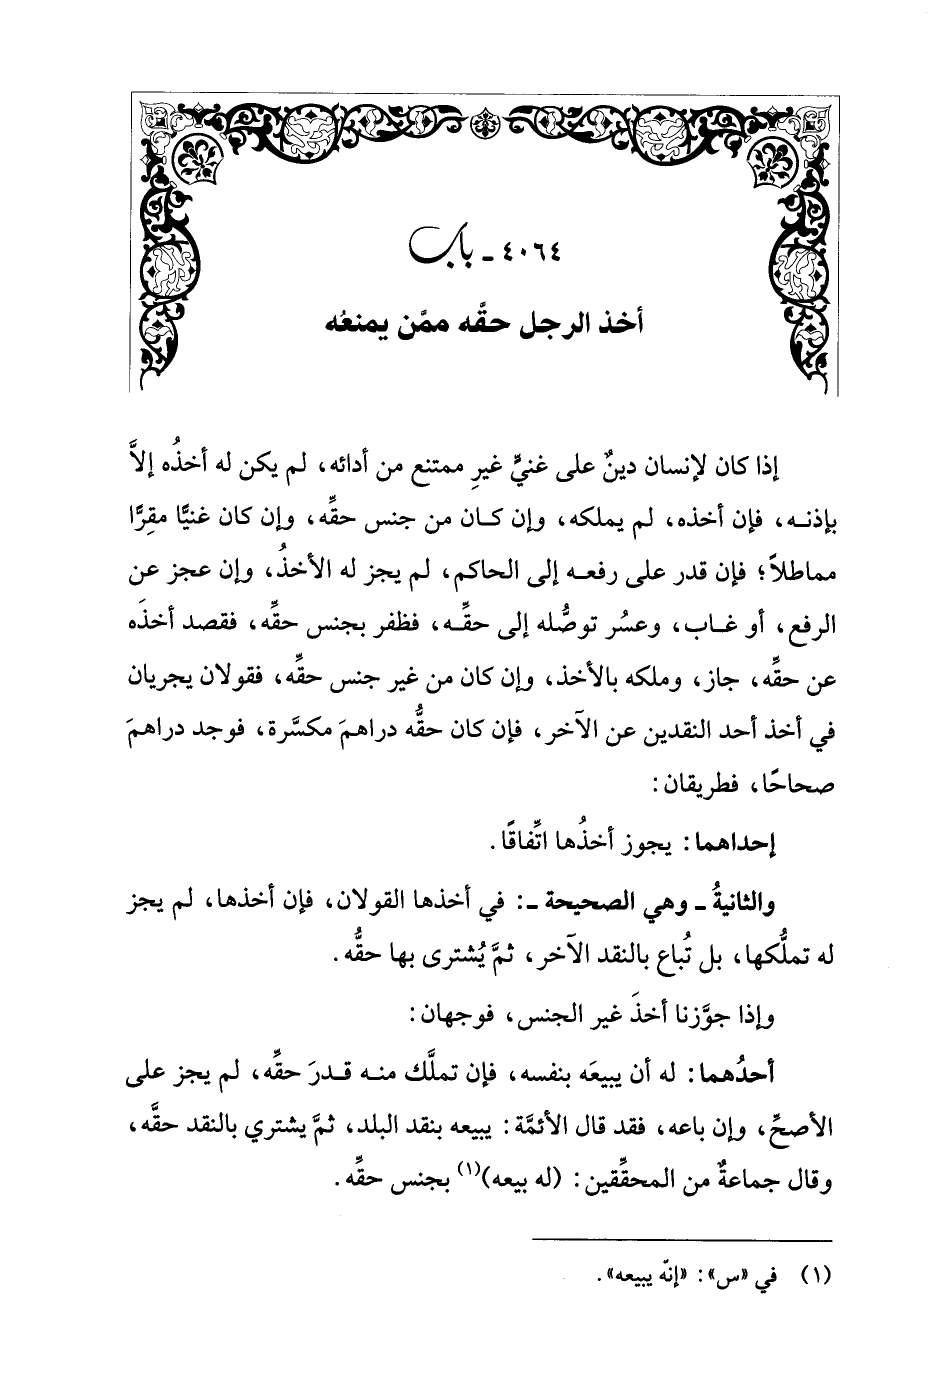 ٤٠٦٤ ـ باب
أخذ الرجل حقَّه ممَّن يمنعُه
إذا كان لإنسان دينٌ على غنيٍّ غيرِ ممتنع من أدائه، لم يكن له أخذُه إلاَّ
بإذنـه، فإن أخذه، لم يملكه، وإن كـان من جنس حقِّه، وإن كان غنيًّا مقِرًّا
مماطلاً؛ فإن قدر على رفعـه إلى الحاكم، لم يجز له الأخذُ، وإن عجز عن
الرفع، أو غـاب، وعسُر توصُّله إلى حقِّـه، فظفر بجنس حقِّه، فقصد أخذَه
عن حقِّه، جاز، وملكه بالأخذ، وإن كان من غير جنس حقِّه، فقولان يجريان
في أخذ أحد النقدين عن الآخر، فإن كان حقُّه دراهمَ مكسَّرة، فوجد دراهمَ
صحاحًا، فطريقان:
إحداهما: يجوز أخذُها اتِّفاقًا.
والثانيةُ ـ وهي الصحيحة ـ: في أخذها القولان، فإن أخذها، لم يجز
له تملُّكها، بل تُباع بالنقد الآخر، ثمَّ يُشترى بها حقُّه.
وإذا جوَّزنا أخذَ غير الجنس، فوجهان:
أحدُهما: له أن يبيعَه بنفسه، فإن تملَّك منـه قـدرَ حقِّه، لم يجز على
الأصحِّ، وإن باعه، فقد قال الأئمَّة: يبيعه بنقد البلد، ثمَّ يشتري بالنقد حقَّه،
وقال جماعةٌ من المحقِّقين: (له بيعه)(١) بجنس حقِّه.
(١) في «س»: «إنّه يبيعه».